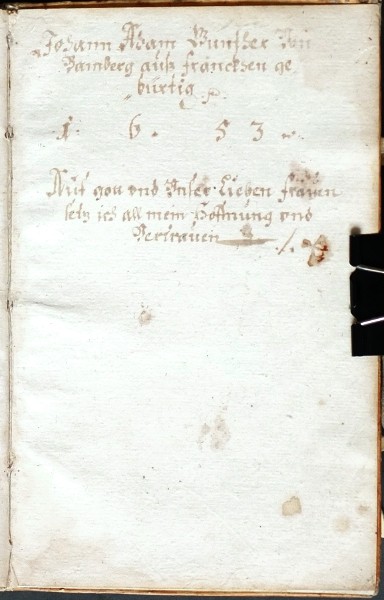 Johann Adam Günther Von
Bamberg auß francken ge
bürtig
1 6 5 3
Auf gott vnd Vnser Lieben frauen
setz ich all mein Hoffnung vnd
Vertrauen